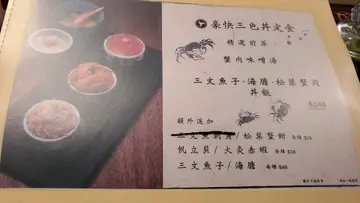 豪快三色丼定食
精選前菜
蟹肉味噌湯
三文魚子·海膽·松葉蟹肉
丼飯
$266
額外追加
三文魚刺身/松葉蟹鉗
帆立貝/火炙赤蝦
三文魚子/海膽